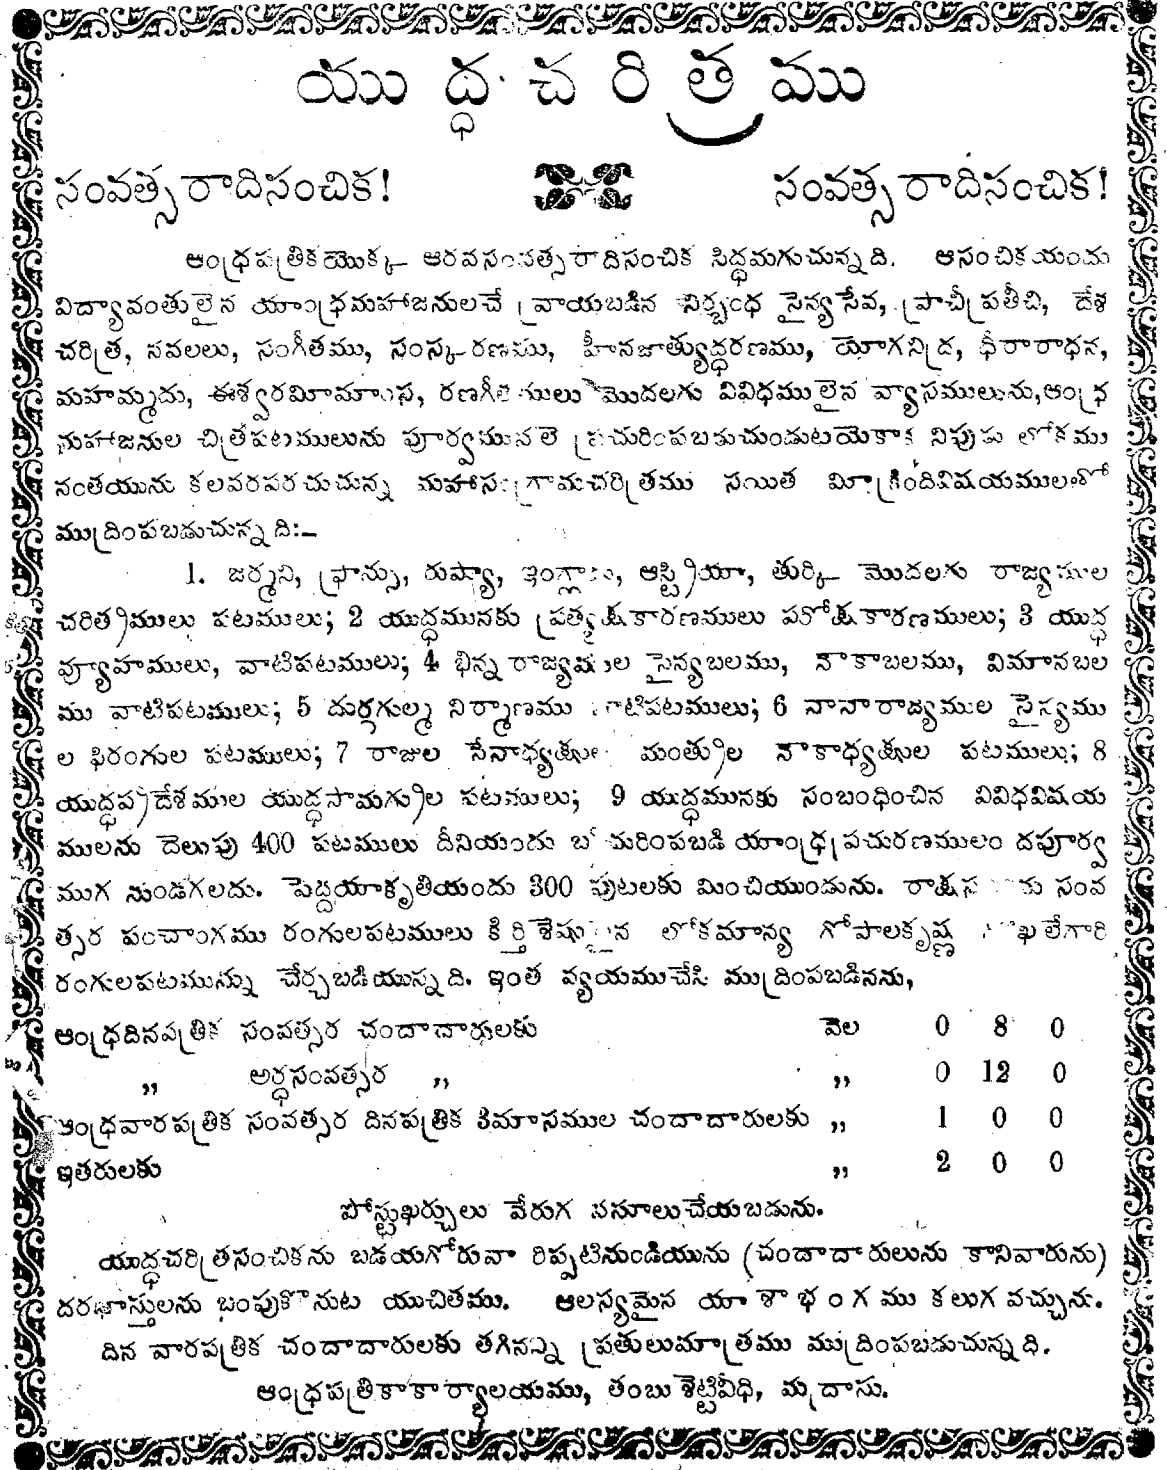 యుద్ధచరిత్రము
సంవత్సరాదిసంచిక! సంవత్సరాదిసంచిక!
ఆంధ్రపత్రికయొక్క ఆరవసంవత్సరాదిసంచిక సిద్ధమగుచున్నది. ఆసంచికయందు
విద్యావంతులైన యాంధ్రమహాజనులచే వ్రాయబడిన నిర్బంధ సైన్యసేవ, ప్రాచీప్రతీచి, దేశ
చరిత్ర, నవలలు, సంగీతము, సంస్కరణము, హీనజాత్యుద్ధరణము, యోగనిద్ర, ధీరారాధన,
మహమ్మదు, ఈశ్వరమీమాంస, రణగీతములు మొదలగు వివిధములైన వ్యాసములును, ఆంధ్ర
మహాజనుల చిత్రపటములును పూర్వమునలె ప్రచురింపబడుచుండుటయెకాక నిపుడు లోకము
నంతయును కలవరపరచుచున్న మహాసంగ్రామచరిత్రము సయిత మీక్రిందివిషయములతో
ముద్రింపబడుచున్నది:—
1. జర్మని, ఫ్రాన్సు, రుష్యా, ఇంగ్లాండు, ఆస్ట్రియా, తుర్కి మొదలగు రాజ్యముల
చరిత్రములు పటములు; 2 యుద్ధమునకు ప్రత్యక్షకారణములు పరోక్షకారణములు; 3 యుద్ధ
వ్యూహములు, వాటిపటములు; 4 భిన్న రాజ్యముల సైన్యబలము, నౌకాబలము, విమానబల
ము వాటిపటములు; 5 దుర్గగుల్మ నిర్మాణము వాటిపటములు; 6 నానారాజ్యముల సైన్యము
ల ఫిరంగుల పటములు; 7 రాజుల సేనాధ్యక్షుల మంత్రుల నౌకాధ్యక్షుల పటములు; 8
యుద్ధప్రదేశముల యుద్ధసామగ్రుల పటములు; 9 యుద్ధమునకు సంబంధించిన వివిధవిషయ
ములను దెలుపు 400 పటములు దీనియందు బ్రచురింపబడి యాంధ్రప్రచురణములం దపూర్వ
ముగ నుండగలదు. పెద్దయాకృతియందు 300 పుటలకు మించియుండును. రాక్షస సంవ
త్సర పంచాంగము రంగులపటములు కీర్తిశేషులైన లోకమాన్య గోపాలకృష్ణ గోఖలేగారి
రంగులపటమున్ను చేర్చబడియున్నది. ఇంత వ్యయముచేసి ముద్రింపబడినను,
ఆంధ్రదినపత్రిక సంవత్సర చందాదార్లులకు వెల 0 8 0
„ అర్ధసంవత్సర „ „ 0 12 0
ఆంధ్రవారపత్రిక సంవత్సర దినపత్రిక 3మాసముల చందాదారులకు „ 1 0 0
ఇతరులకు „ 2 0 0
పోస్టుఖర్చులు వేరుగ వసూలుచేయబడును.
యుద్ధచరిత్రసంచికను బడయగోరువా రిప్పటినుండియును (చందాదారులును కానివారును)
దరఖాస్తులను బంపుకొనుట యుచితము. ఆలస్యమైన యాశాభంగము కలుగవచ్చును.
దిన వారపత్రిక చందాదారులకు తగినన్ని ప్రతులుమాత్రము ముద్రింపబడుచున్నది.
ఆంధ్రపత్రికాకార్యాలయము, తంబుశెట్టివీధి, మద్రాసు.